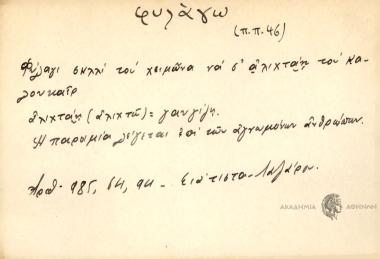 φυλάγω
(π.π. 46)
Φύλαγι σκλλί τού χειμῶνα νά σ' ἀλιχτάῃ τού κα-
λουκαῖρ
ἀλιχτάῃ (ἀλιχτῶ) = γαυγίζῃ.
Ἡ παροιμία λέγεται ἐπί τῶν ἀγνωμόνων ἀνθρώπων.
Ἀρθ. 985, 64, 94 - Σιάτιστα - Λαζάρου.
ΑΚΑΔΗΜΙΑ ΑΘΗΝΩΝ